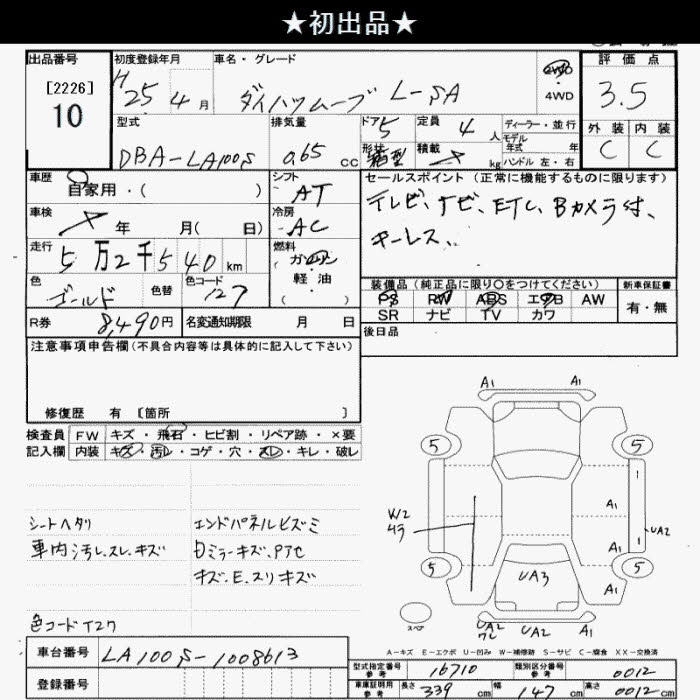 ★初出品★
出品番号
[2226]
10
初度登録年月
H25年4月
車名・グレード
ダイハツムーブ L-SA
2WD
4WD
評価点
3.5
外装 内装
C C
型式
DBA-LA100S
排気量
0.65 cc
ドア 5
形状 箱型
定員 4人
積載 kg
ディーラー・並行
モデル年式 年
ハンドル 左・右
車歴
自家用・( )
車検
年 月( 日)
走行
5万2千540km
色
ゴールド
色替
色コード
127
シフト
AT
冷房
AC
燃料
ガソリン
軽油
( )
R券
8,490円
名変通知期限 月 日
セールスポイント(正常に機能するものに限ります)
テレビ、ナビ、ETC、Bカメラ付、
キーレス、、
装備品(純正品に限り○をつけてください)
PS RW ABS エアB AW
SR ナビ TV カワ
新車保証書
有・無
後日品
注意事項申告欄(不具合内容等は具体的に記入して下さい)
修復歴 有 [箇所 ]
検査員 FW キズ・飛石・ヒビ割・リペア跡・×要
記入欄 内装 キズ・汚レ・コゲ・穴・スレ・キレ・破レ
シートヘタリ
車内汚レ、スレ、キズ
エンドパネルヒズミ
Dミラーキズ、PTC
キズ、E、スリキズ
色コードT27
A1 A1
5 5
A1
W2
A1
UA2
A1
5 5
UA3
UA2
UA2
A1
スペア
A-キズ E-エクボ U-凹み W-補修跡 S-サビ C-腐食 XX-交換済
車台番号
LA100S-1008613
登録番号
型式指定番号 参考 16710
類別区分番号 参考 0012
車庫証明用 参考 長さ 339cm 幅 147cm 高さ 0012cm